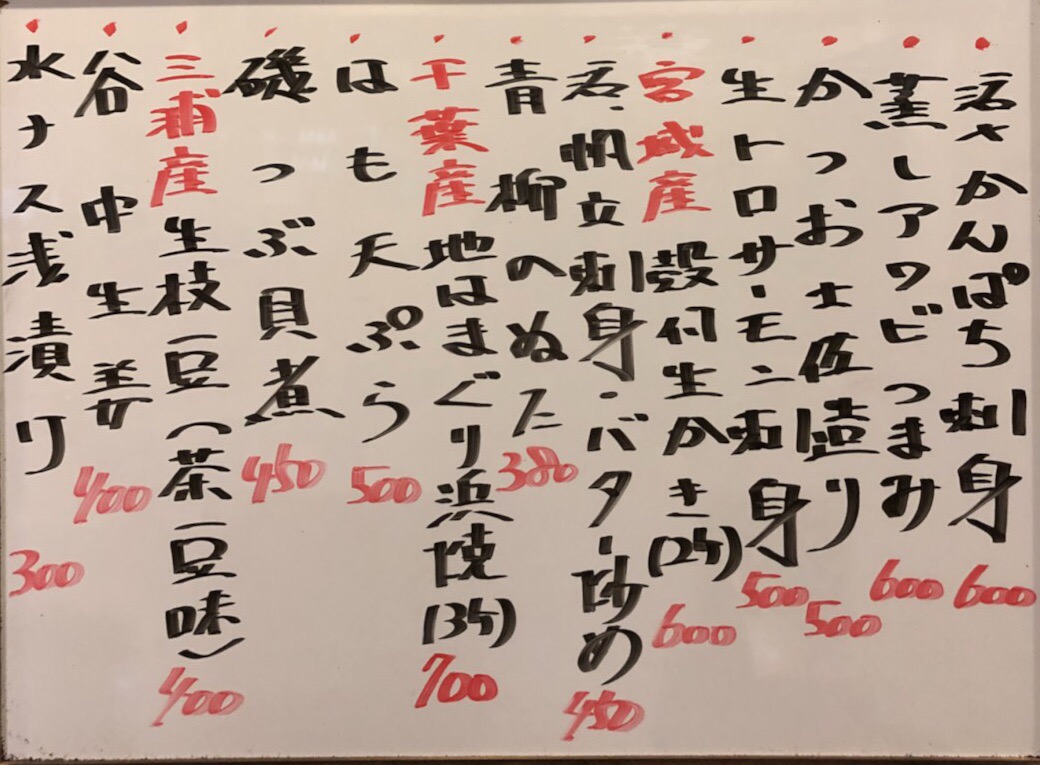 活〆かんぱち刺身 600
蒸しアワビつまみ 600
かつお土佐造り 500
生トロサーモン刺身 500
宮城産 殻付生かき(2ケ) 600
活帆立刺身・バター炒め 450
青柳のぬた 380
千葉産 地はまぐり浜焼(3ケ) 700
はも天ぷら 500
磯つぶ貝煮 450
三浦産 生枝豆(茶豆味) 400
谷中生姜 400
水ナス浅漬り 300